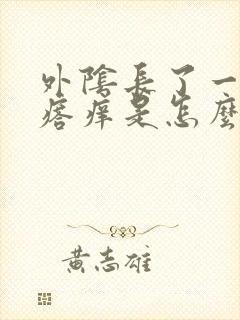 外陰長了一
瘩痒是怎麼
黃志雄